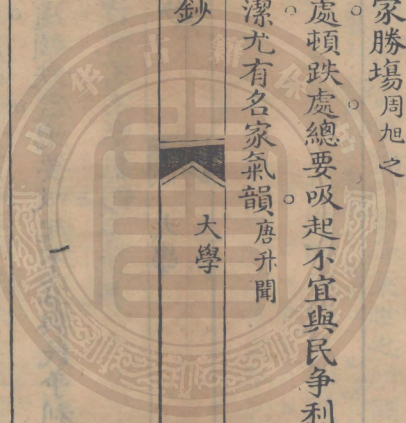 家勝場周旭之
處頓跌處總要吸起不宜與民争利
潔尤有名家氣韻唐升聞
鈔
大學